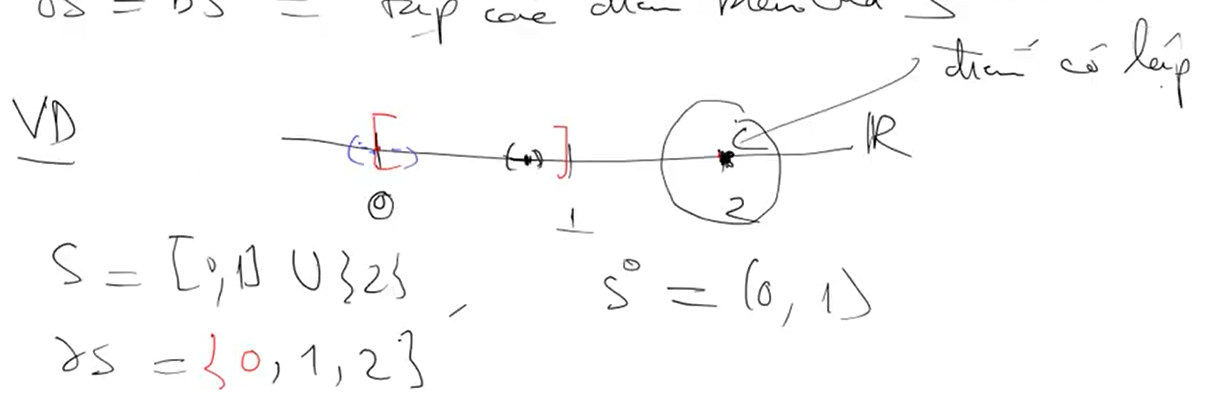 ∂S = bS = tập các điểm biên của S
điểm cô lập
VD
[ ] ℝ
0 1 2
S = [0,1] ∪ {2}, S° = (0, 1)
∂S = {0, 1, 2}